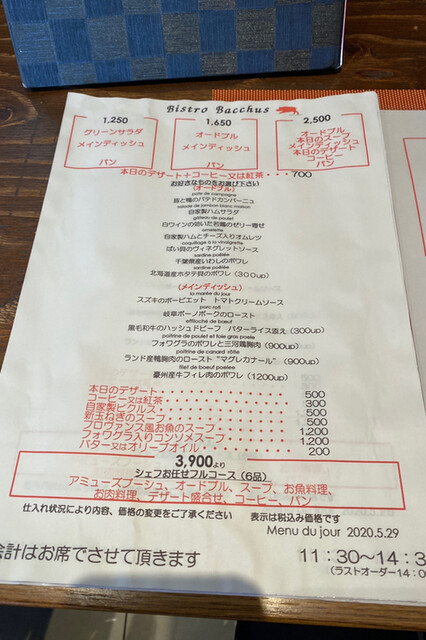 Bistro Bacchus
1,250
グリーンサラダ
メインディッシュ
パン
1,650
オードブル
メインディッシュ
パン
2,500
オードブル
本日のスープ
メインディッシュ
本日のデザート
コーヒー
パン
本日のデザート＋コーヒー又は紅茶・・・700
お好きなものをお選び下さい
(オードブル)
pate de campagne
豚と鶏のパテドカンパーニュ
salade de jambon blanc maison
自家製ハムサラダ
gâteau de poulet
白ワインの効いた若鶏のゼリー寄せ
omelette
自家製ハムとチーズ入りオムレツ
coquillage à la vinaigrette
ばい貝のヴィネグレットソース
sardine poêlée
千葉県産いわしのポワレ
北海道産ホタテ貝のポワレ (300up)
(メインディッシュ)
la marée du jour
スズキのポーピエット トマトクリームソース
porc roti
岐阜ボーノポークのロースト
effiloché de bœuf
黒毛和牛のハッシュドビーフ バターライス添え (300up)
poitrine de poulet et foie gras poele
フォワグラのポワレと三河鶏胸肉 (900up)
poitrine de canard rôtie
ランド産鴨胸肉のロースト "マグレカナール" (900up)
filet de boeuf poelee
豪州産牛フィレ肉のポワレ (1200up)
本日のデザート・・・500
コーヒー又は紅茶・・・300
自家製ピクルス・・・500
新玉ねぎのスープ・・・500
プロヴァンス風お魚のスープ・・・1,200
フォワグラ入りコンソメスープ・・・1,200
バター又はオリーブオイル・・・200
3,900より
シェフお任せフルコース (6品)
アミューズブーシュ、オードブル、スープ、お魚料理、
お肉料理、デザート盛合せ、コーヒー、パン
仕入れ状況により内容、価格の変更をご了承ください 表示は税込み価格です
Menu du jour 2020.5.29
会計はお席でさせて頂きます
11:30～14:3
(ラストオーダー14:0